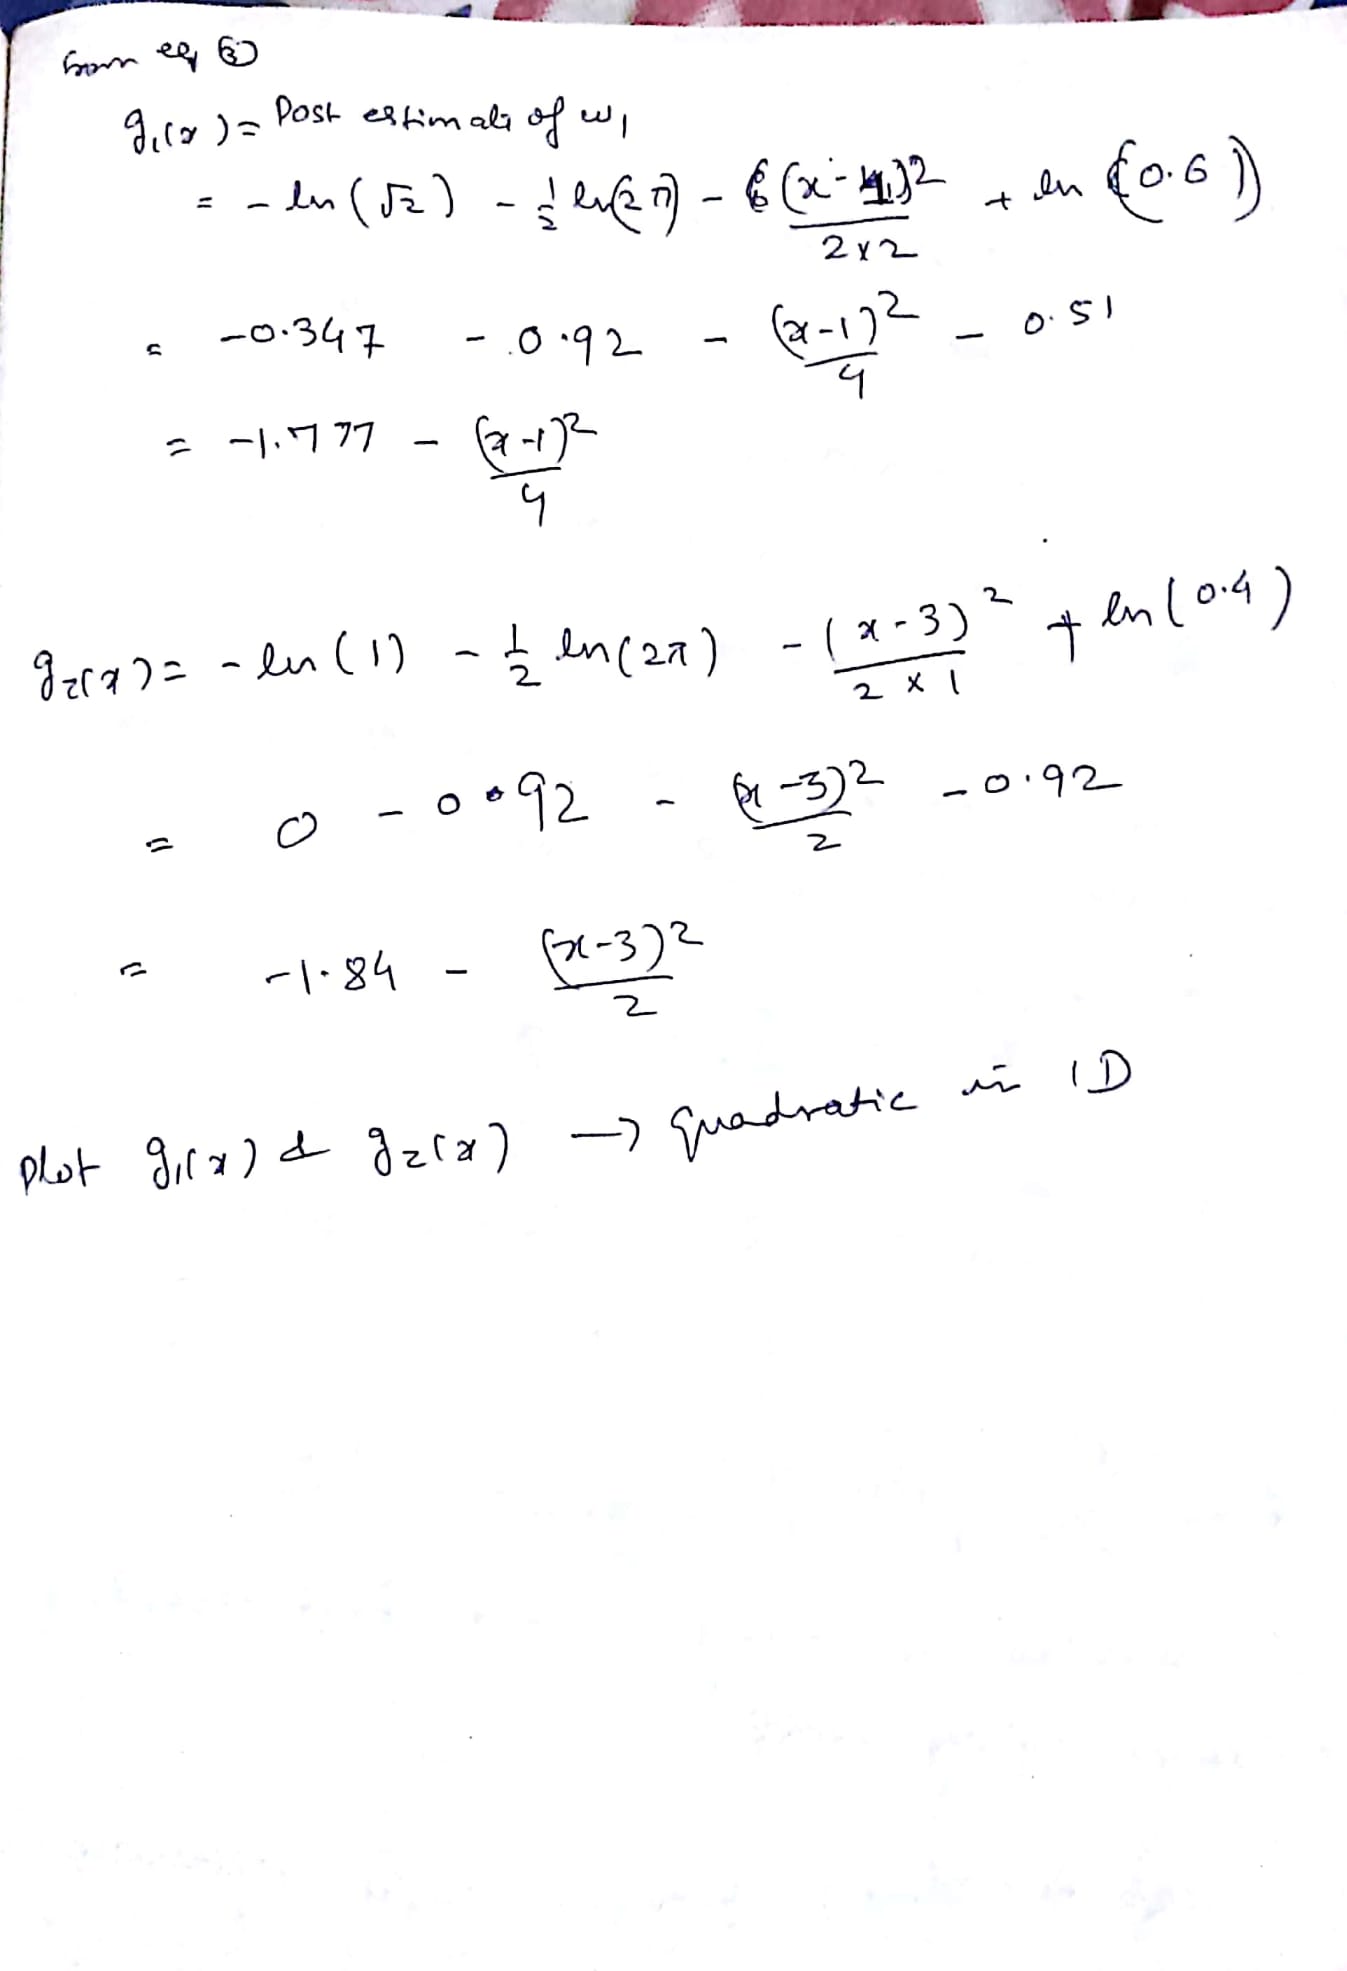 from eq ③
g₁(x) = Post estimate of ω₁
= - ln(√2) - ½ ln(2π) - (x - 1)² / 2×2 + ln(0.6)
= -0.347 - 0.92 - (x-1)² / 4 - 0.51
= -1.777 - (x-1)² / 4
g₂(x) = - ln(1) - ½ ln(2π) - (x-3)² / 2×1 + ln(0.4)
= 0 - 0.92 - (x-3)² / 2 - 0.92
= -1.84 - (x-3)² / 2
plot g₁(x) & g₂(x) → quadratic in 1D